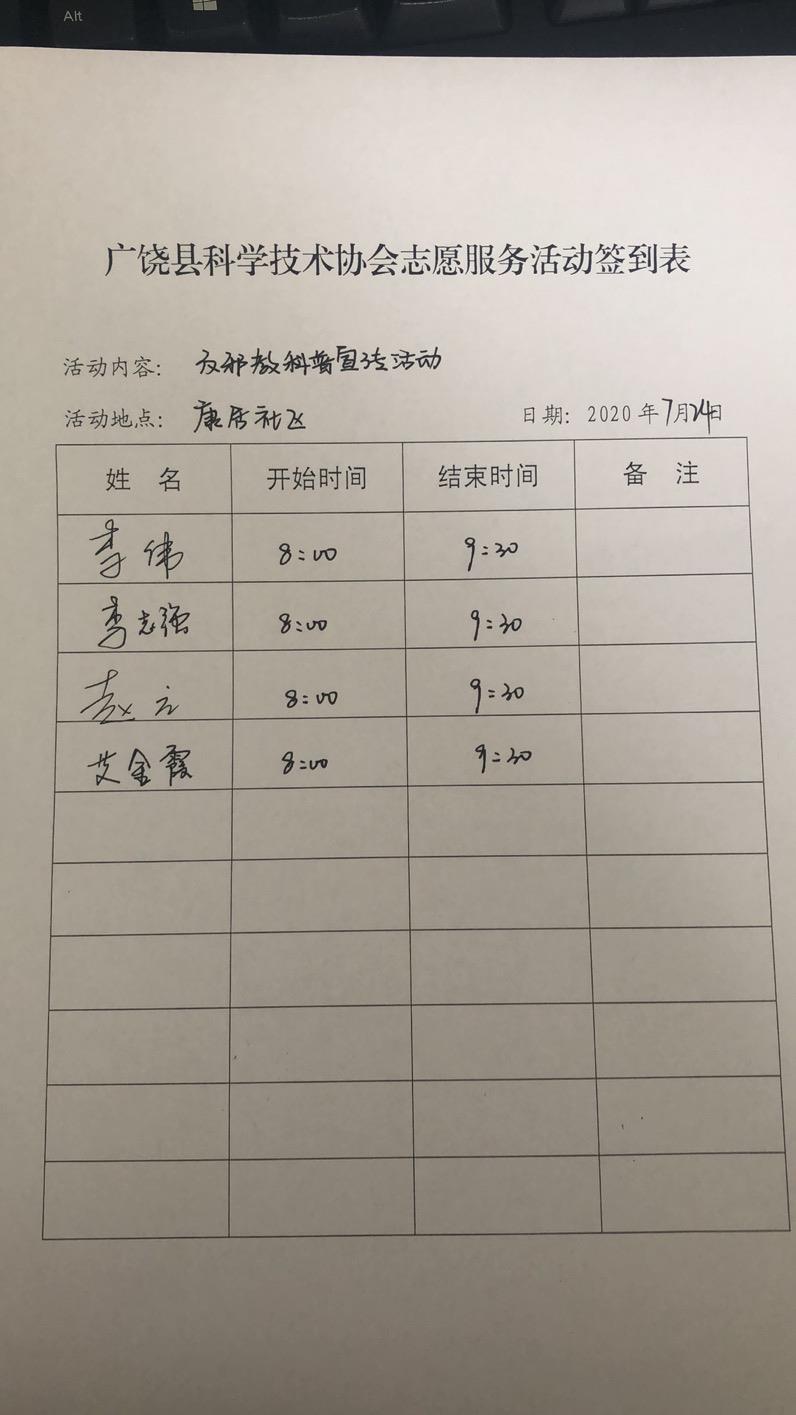 Alt
广饶县科学技术协会志愿服务活动签到表
活动内容: 反邪教科普宣传活动
活动地点: 康居社区 日期: 2020年7月24日
姓 名 开始时间 结束时间 备 注
李伟 8:00 9:30
李志强 8:00 9:30
赵云 8:00 9:30
艾金霞 8:00 9:30